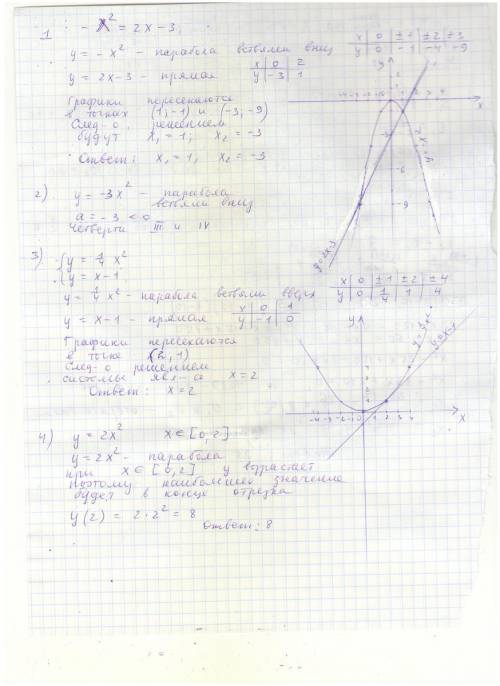 1. - x² = 2x - 3;
y = - x² - парабола ветвями вниз
x | 0 | ±1 | ±2 | ±3
y | 0 | -1 | -4 | -9
y = 2x-3 - прямая
x | 0 | 2
y | -3 | 1
Графики пересекаются
в точках (1,-1) и (-3,-9)
След-о, решением
будут x₁ = 1; x₂ = -3
Ответ: x₁ = 1; x₂ = -3
y
x
-6
-9
y=2x-3
2) y = -3x² - парабола
ветвями вниз
a = -3 < 0
Четверти III и IV
3) { y = 1/4 x²
{ y = x-1
y = 1/4 x² - парабола ветвями вверх
x | 0 | ±1 | ±2 | ±4
y | 0 | 1/4 | 1 | 4
y = x-1 - прямая
x | 0 | 1
y | -1 | 0
Графики пересекаются
в точке (2,1)
След-о решением
системы явл-ся x = 2
Ответ: x = 2
y
x
y=x-1
4) y = 2x² x∈[0,2]
y = 2x² - парабола
при x∈[0,2] y возрастает
Поэтому наибольшее значение
будет в конце отрезка
y(2) = 2·2² = 8
Ответ: 8